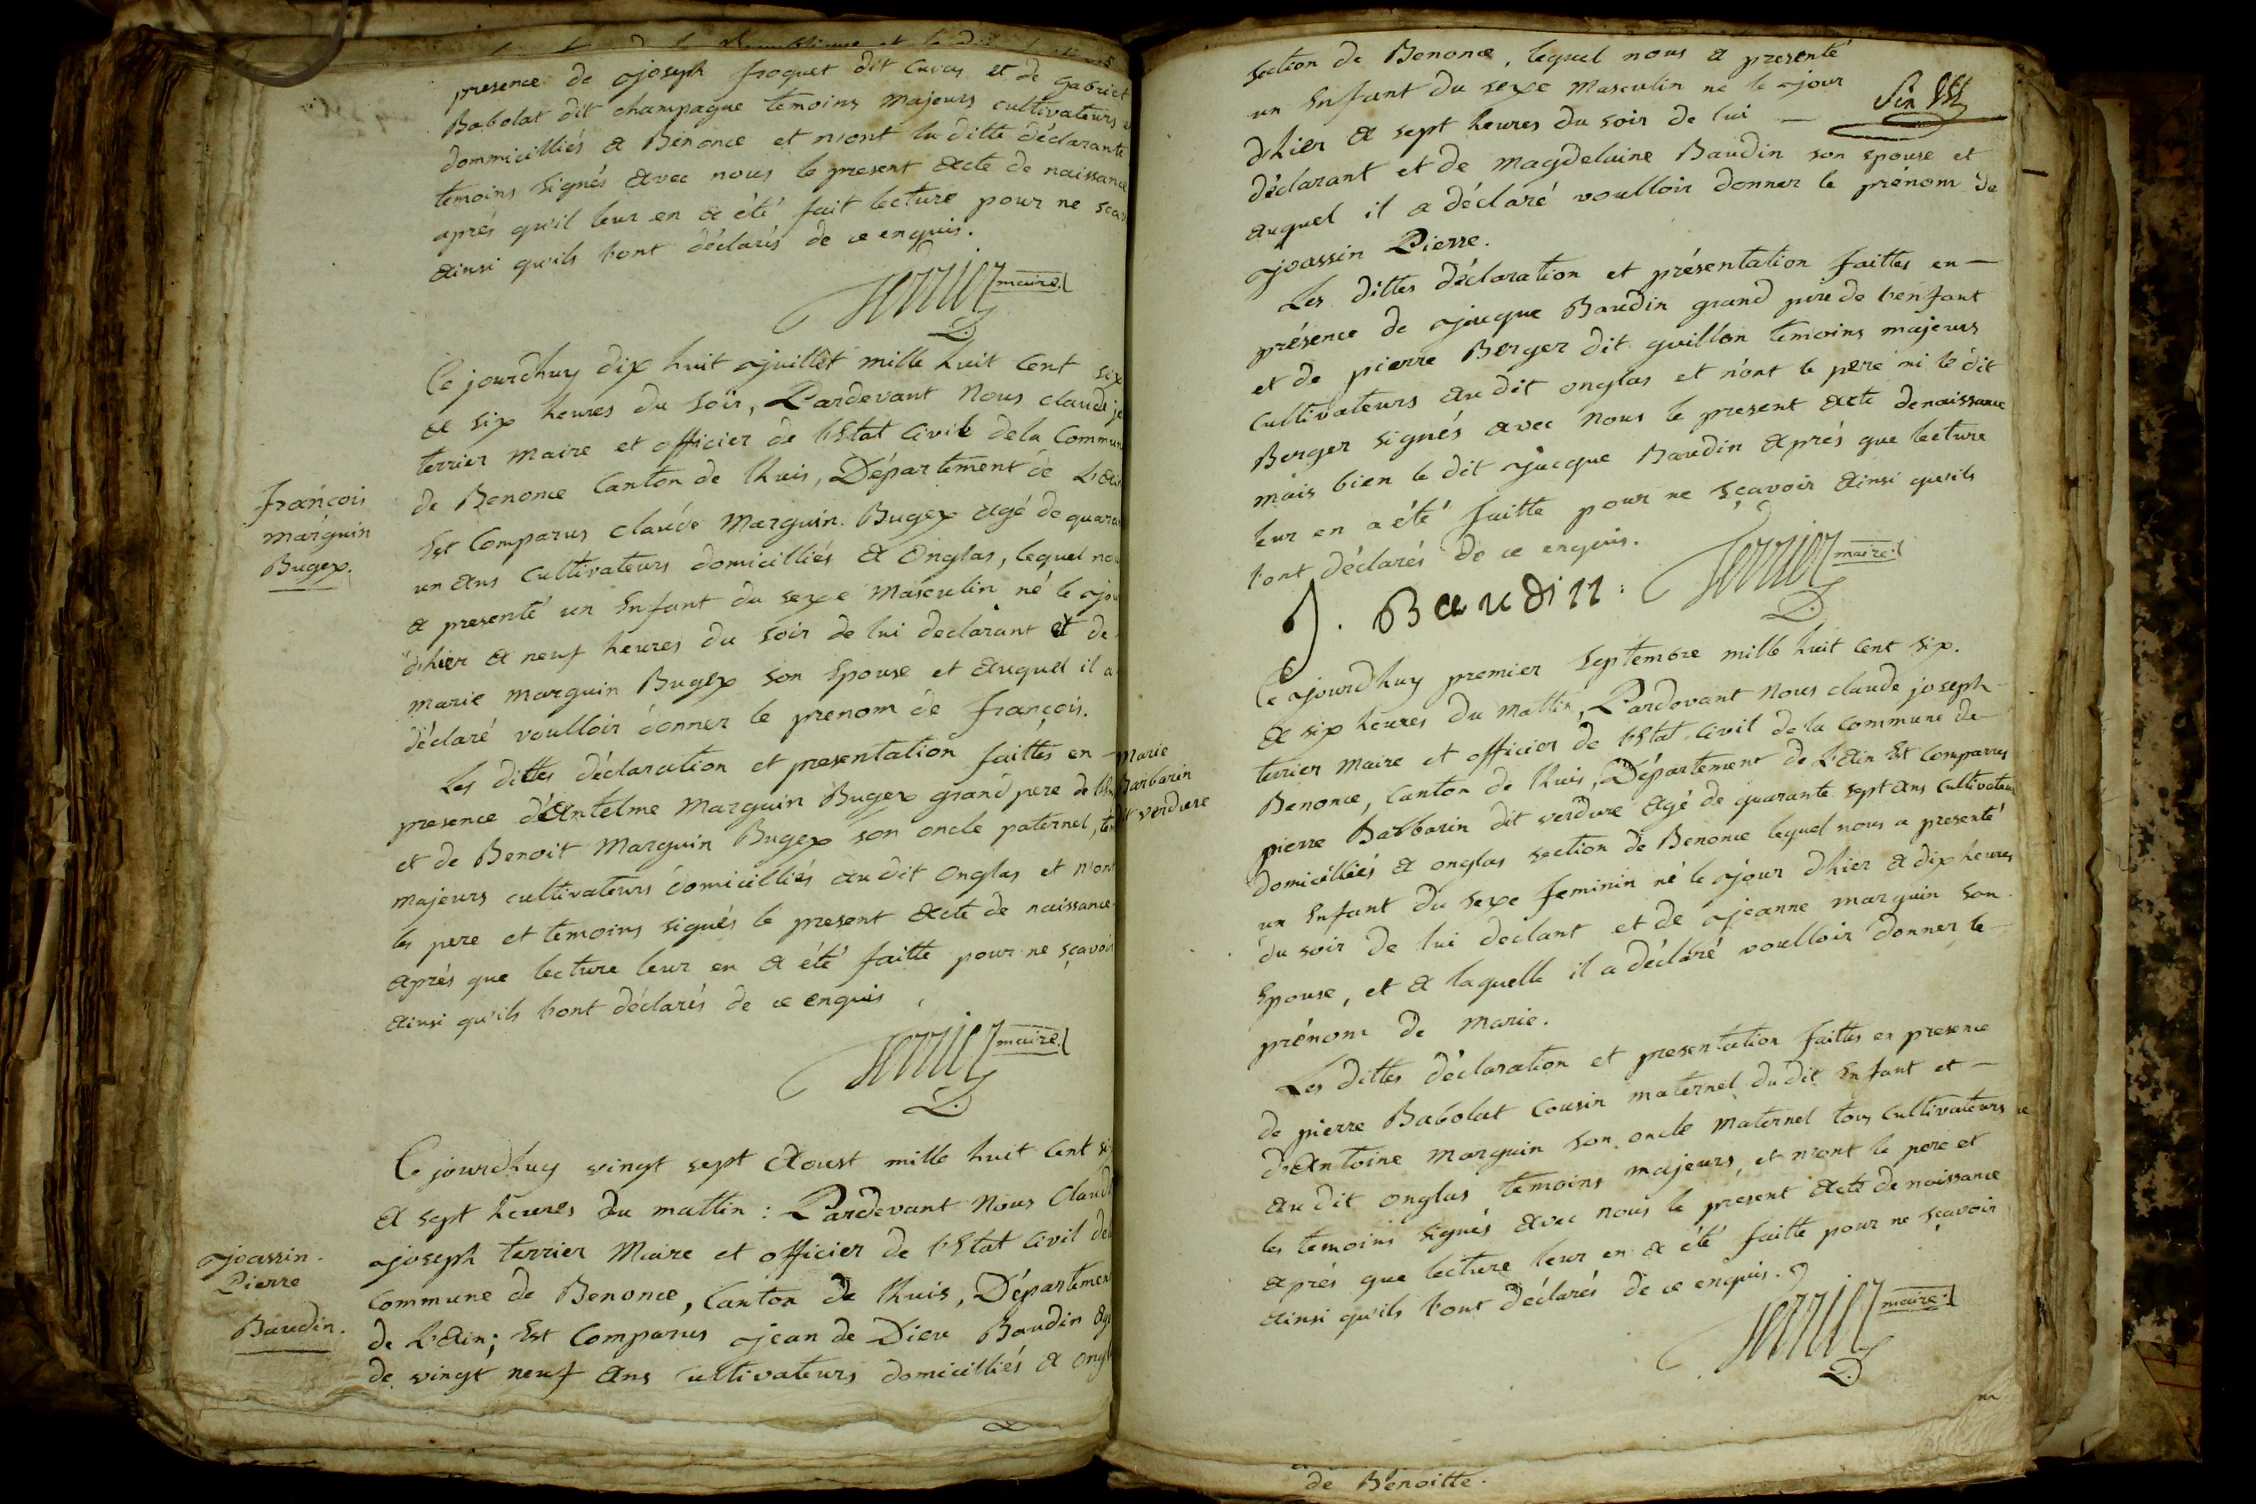 presence de joseph froquet dit et de gabriel
Babolat dit champagne temoins majeurs cultivateurs
dommicilliés a Benonce et n'ont la ditte déclarante
temoins signés avec nous le present acte de naissance
aprés qu'il leur en a été fait lecture pour ne scav
ainsi qu'ils l'ont déclarés de ce enquis.
Terrier maire
françois
marguin
Bugex.
Ce jourdhuy dix huit juillet mille huit cent six
a six heures du soir, Pardevant Nous claude jo
terrier maire et officier de l'Etat civil dela Commun
de Benonce Canton de lhuis, Département de L'ain
Est Comparus claude Marguin Bugex agé de quaran
un ans cultivateurs domicilliés a Onglas, lequel nou
a presenté un Enfant du sexe masculin né le jou
d'hier a neuf heures du soir de lui declarant et de
marie marguin Bugex son Epouse et auquel il a
déclaré voulloir donner le prenom de françois.
Les dittes déclaration et presentation faittes en
presence d'antelme marguin Bugex grand pere de l'En
et de Benoit marguin Bugex son oncle paternel, tem
majeurs cultivateurs domicilliés au dit Onglas et n'ont
les pere et temoins signés le present acte de naissance
aprés que lecture leur en a été faitte pour ne sçavoir
ainsi qu'ils l'ont déclarés de ce enquis
Terrier maire
joassin
Pierre
Baudin.
Ce jourdhuy vingt sept aoust mille huit cent six
a sept heures du mattin : Pardevant Nous Claude
joseph terrier Maire et officier de l'Etat civil de
Commune de Benonce, Canton de lhuis, Département
de L'ain; Est Comparus jean de Dieu Baudin agé
de vingt neuf ans cultivateurs domicilliés a Ongl
section de Benonce, lequel nous a presenté
un Enfant du sexe masculin né le jour
d'hier a sept heures du soir de lui
déclarant et de magdelaine Baudin son epouse et
auquel il a déclaré voulloir donner le prénom de
joassin Pierre.
Les dittes déclaration et présentation faittes en
présence de jacque Baudin grand pere de l'enfant
et de pierre Berger dit guillon temoins majeurs
cultivateurs au dit onglas et n'ont le pere ni le dit
Berger signés avec nous le present acte de naissance
mais bien le dit jacque Baudin aprés que lecture
leur en a été faitte pour ne sçavoir ainsi qu'ils
l'ont déclarés de ce enquis.
J. Baudin. Terrier maire
Marie
Barbarin
dit verdure
Ce jourdhuy premier Septembre mille huit cent six.
a six heures du mattin, Pardevant Nous claude joseph
terrier maire et officier de l'Etat civil de la commune de
Benonce, Canton de lhuis, Département de L'ain Est Comparus
pierre Barbarin dit verdure agé de quarante sept ans cultivateur
domicilliés a onglas section de Benonce lequel nous a presenté
un Enfant du sexe feminin né le jour d'hier a dix heures
du soir de lui declant et de jeanne marguin son
Epouse, et a laquelle il a déclaré voulloir donner le
prénom de marie.
Les dittes déclaration et presentation faittes en presence
de pierre Babolat cousin maternel dudit Enfant et
d'antoine marguin son oncle maternel tous cultivateurs
au dit onglas temoins majeurs, et n'ont le pere et
les temoins signés avec nous le present acte de naissance
aprés que lecture leur en a été faitte pour ne sçavoir
ainsi qu'ils l'ont déclarés de ce enquis.
Terrier maire
de Benoitte.